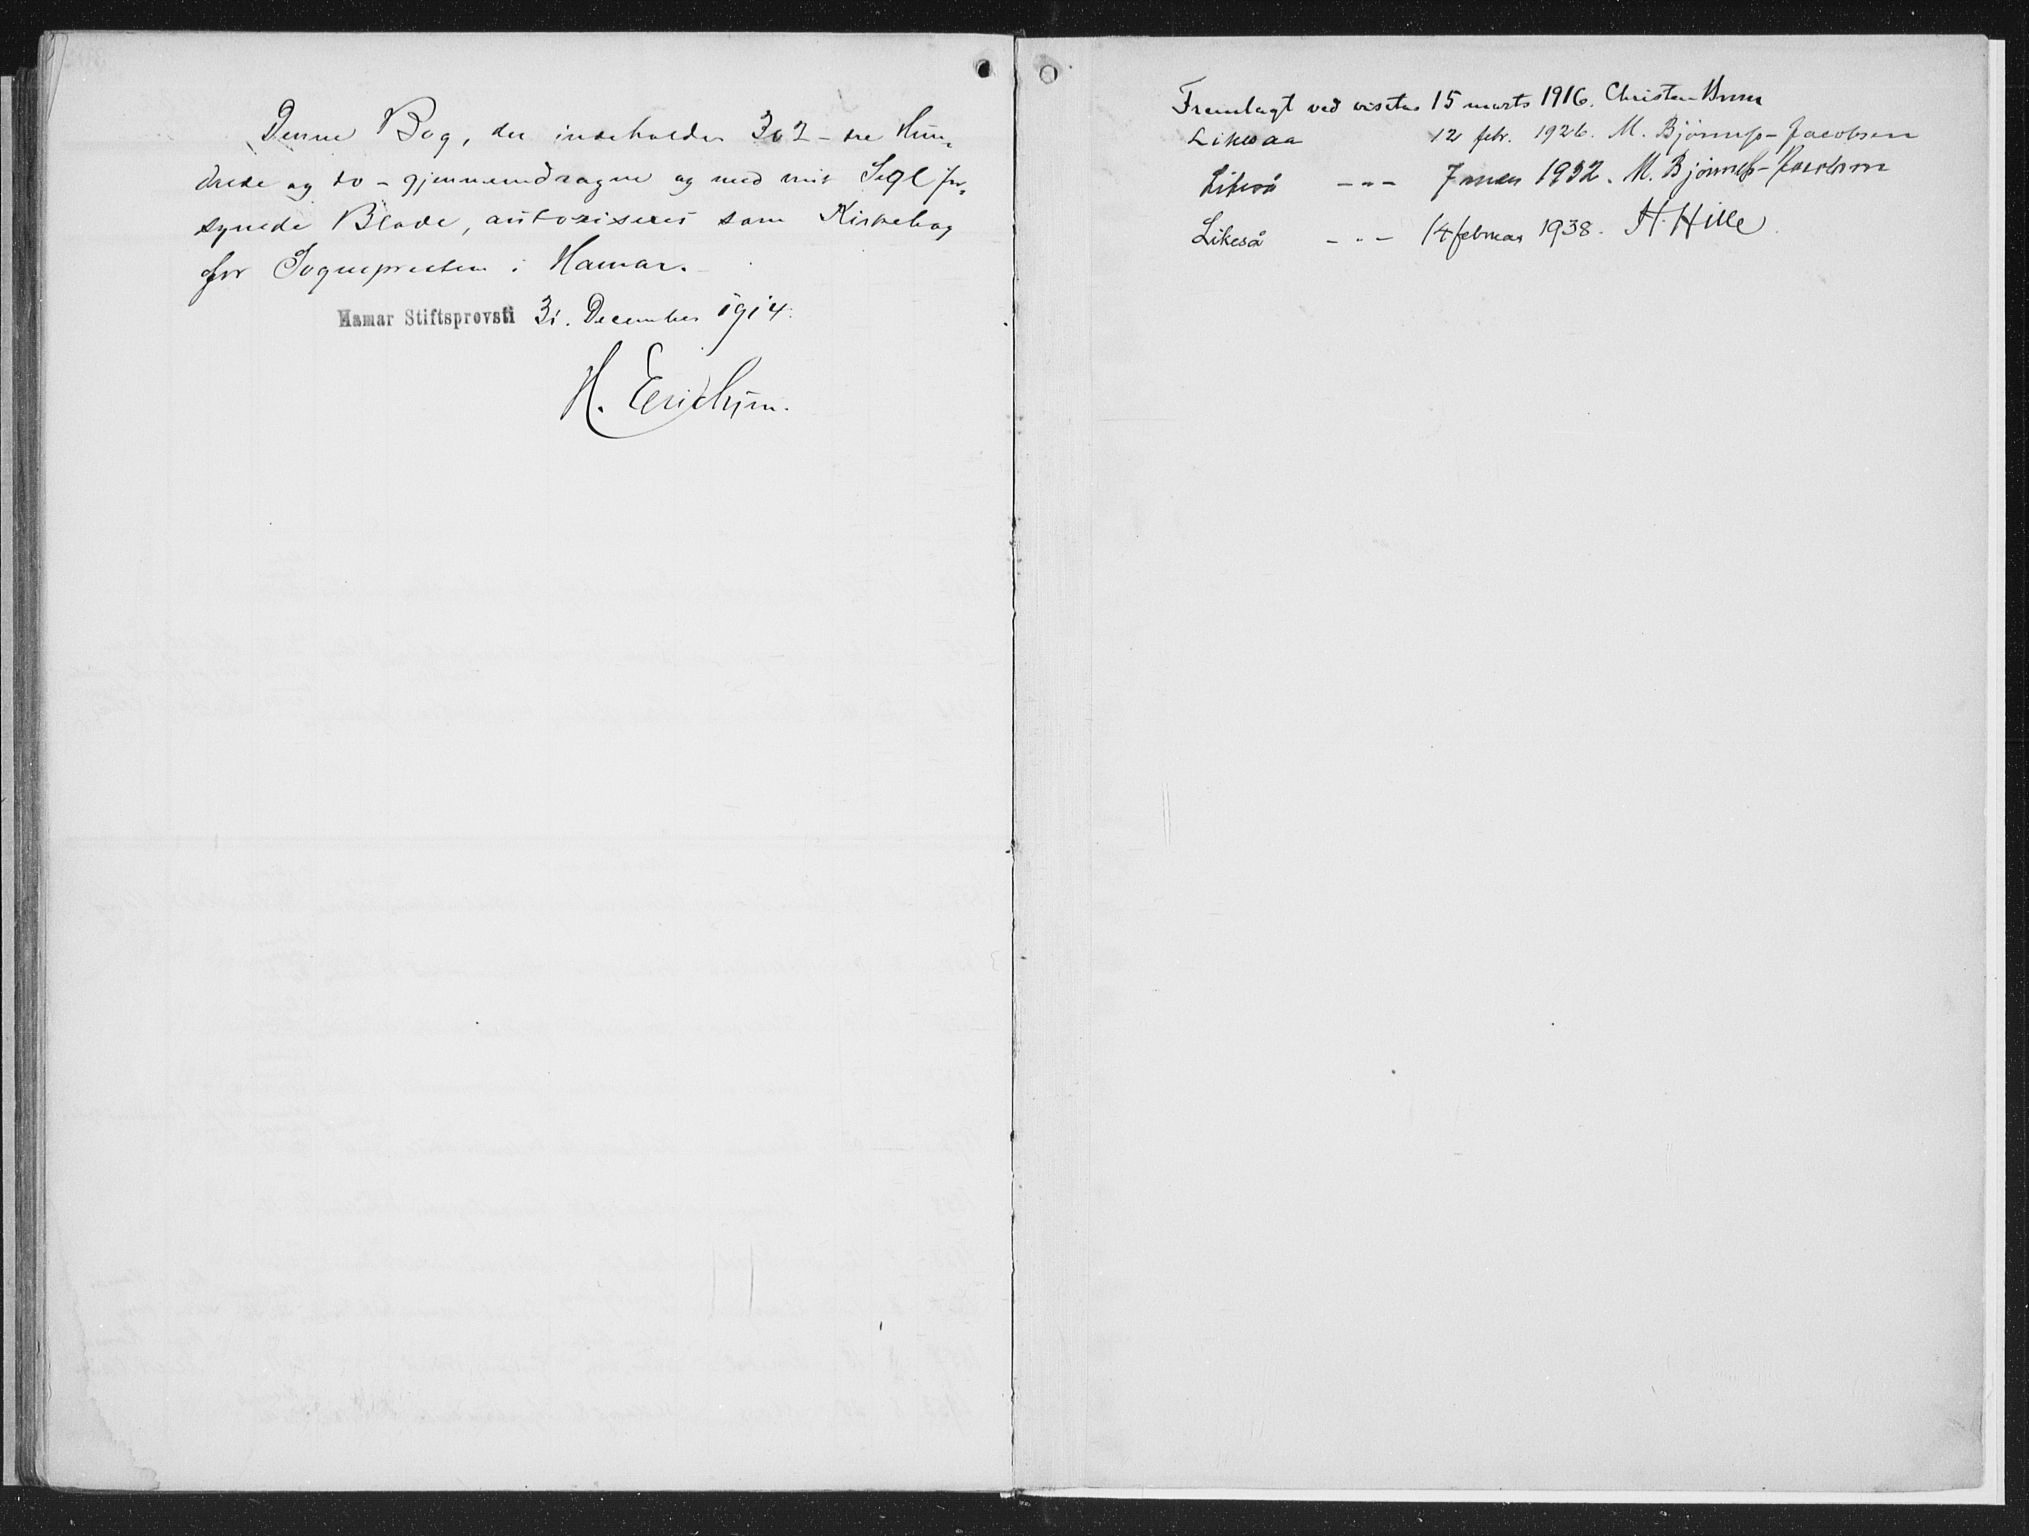 Denne Bog, der indeholder 302 – tre Hun-
drede og to – gjennemdragne og med mit Segl for-
synede Blade, autoriseres som Kirkebog
for Sognepresten i Hamar.
Hamar Stiftsprovsti 31. December 1914.
H. Erichsen.
Fremlagt ved visitas 15 marts 1916. Christen Brun
Likesaa 12 febr. 1926. M. Bjønnes-Jacobsen
Likeså - - - 7 mars 1932. M. Bjønnes-Jacobsen
Likeså - - - 14 februar 1938. H. Hille.